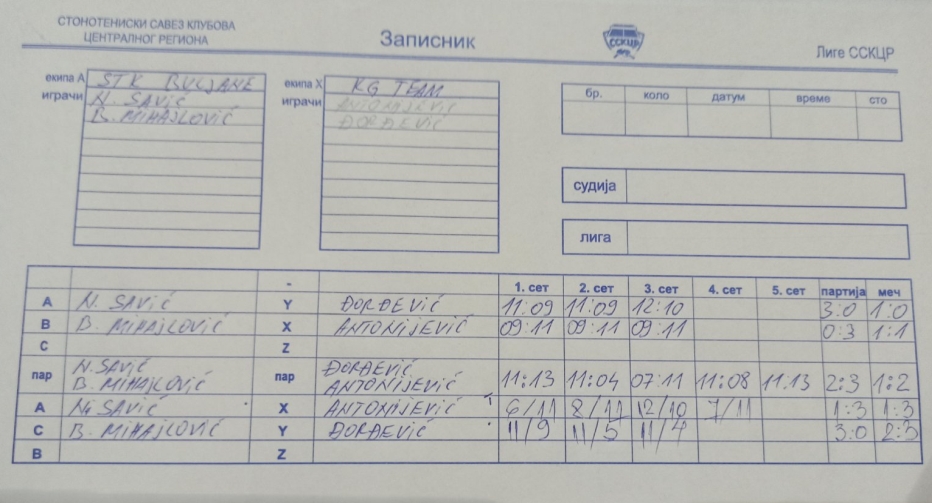 СТОНОТЕНИСКИ САВЕЗ КЛУБОВА
ЦЕНТРАЛНОГ РЕГИОНА
Записник
ССКЦР
Лиге ССКЦР
екипа А STK BULJANE
играчи N. SAVIĆ
B. MIHAJLOVIĆ
екипа X KG TEAM
играчи ANTONIJEVIĆ
ĐORĐEVIĆ
бр. коло датум време сто
судија
лига
- 1. сет 2. сет 3. сет 4. сет 5. сет партија меч
A N. SAVIĆ Y ĐORĐEVIĆ 11:09 11:09 12:10 3:0 1:0
B B. MIHAJLOVIĆ X ANTONIJEVIĆ 09:11 09:11 09:11 0:3 1:1
C Z
N. SAVIĆ ĐORĐEVIĆ
пар B. MIHAJLOVIĆ пар ANTONIJEVIĆ 11:13 11:04 07:11 11:08 11.13 2:3 1:2
A N. SAVIĆ X ANTONIJEVIĆ 6/11 8/11 12/10 7/11 1:3 1:3
C B. MIHAJLOVIĆ Y ĐORĐEVIĆ 11/9 11/5 11/4 3:0 2:3
B Z